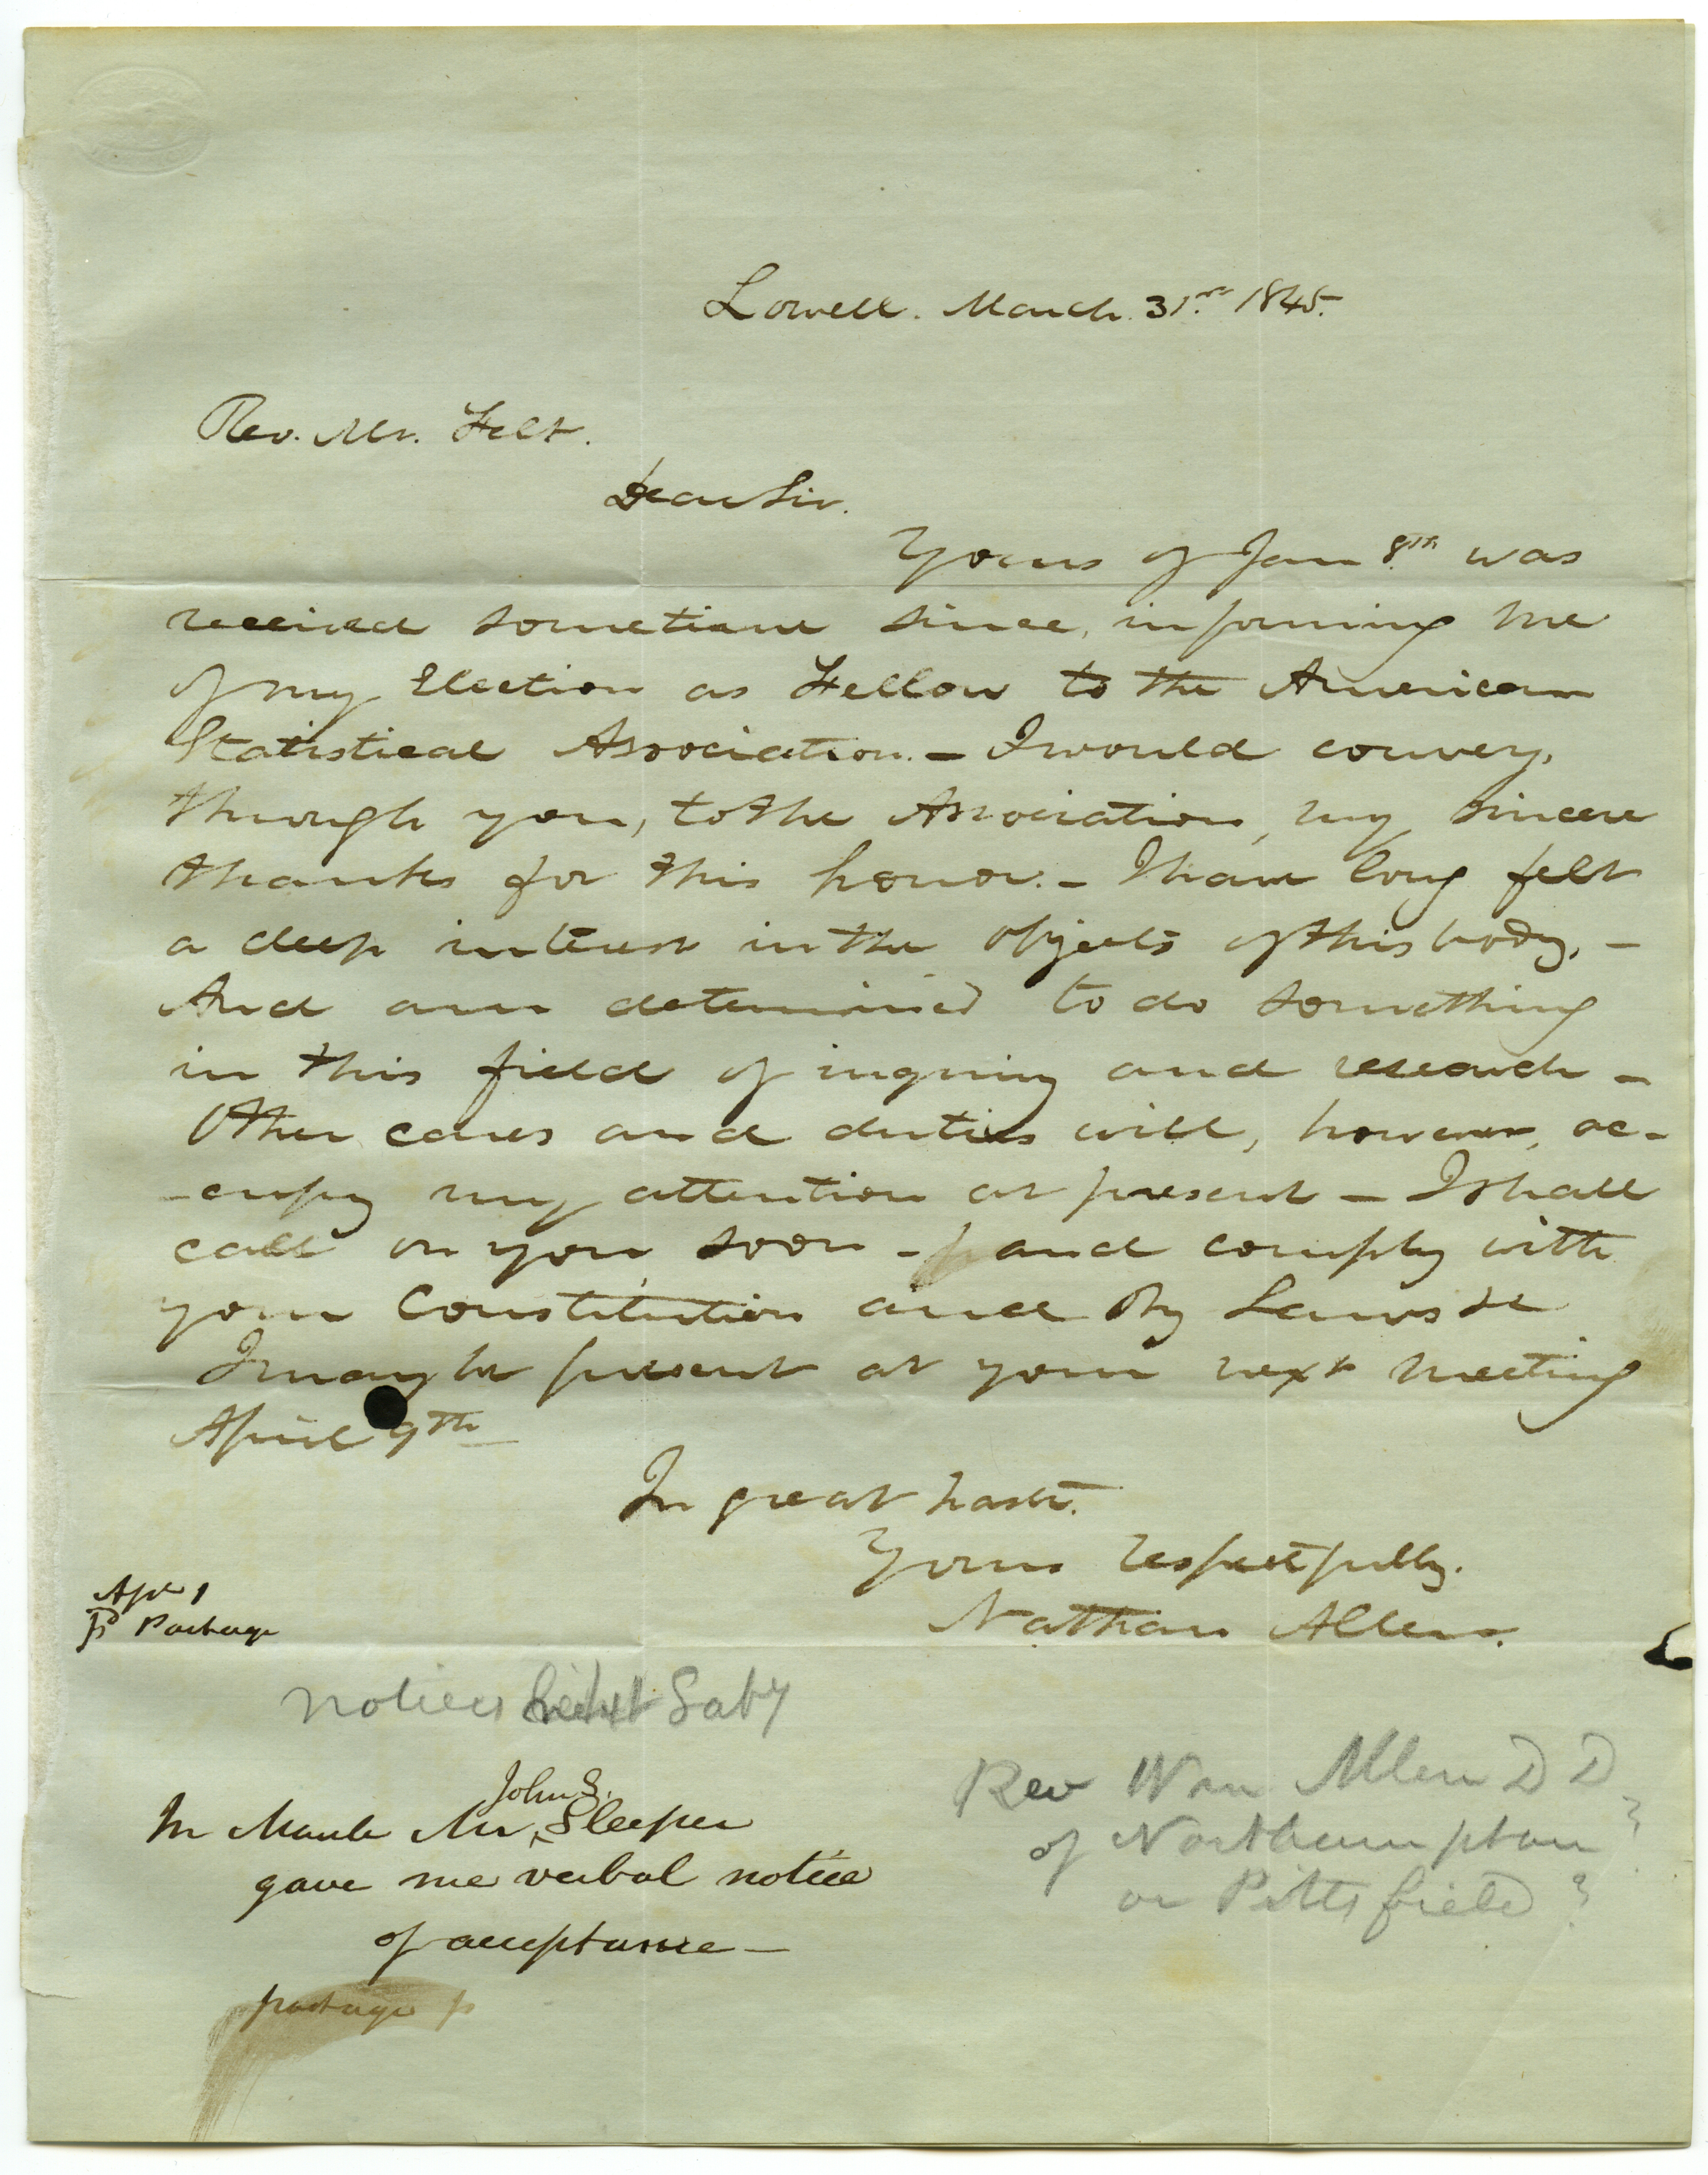 Lowell. March. 31st 1845.
Rev. Mr. Felt.
Dear Sir.
Yours of Jan 8th was
received sometime since, informing me
of my Election as Fellow to the American
Statistical Association. – I would convey,
through you, to the Association, my sincere
thanks for this honor. – I have long felt
a deep interest in the objects of this body, –
And am determined to do something
in this field of inquiry and research –
Other cares and duties will, however, oc-
-cupy my attention at present – I shall
call on you soon – and comply with
your Constitution and By Laws &c
I may be present at your next meeting
April 9th –
In great haste.
Yours respectfully.
Nathan Allen.
Apl 1
pd Postage
notices Saby
John S.
In March Mr, Sleeper
gave me verbal notice
of acceptance –
postage p
Rev Wm Allen D D
of Northampton ?
or Pittsfield ?